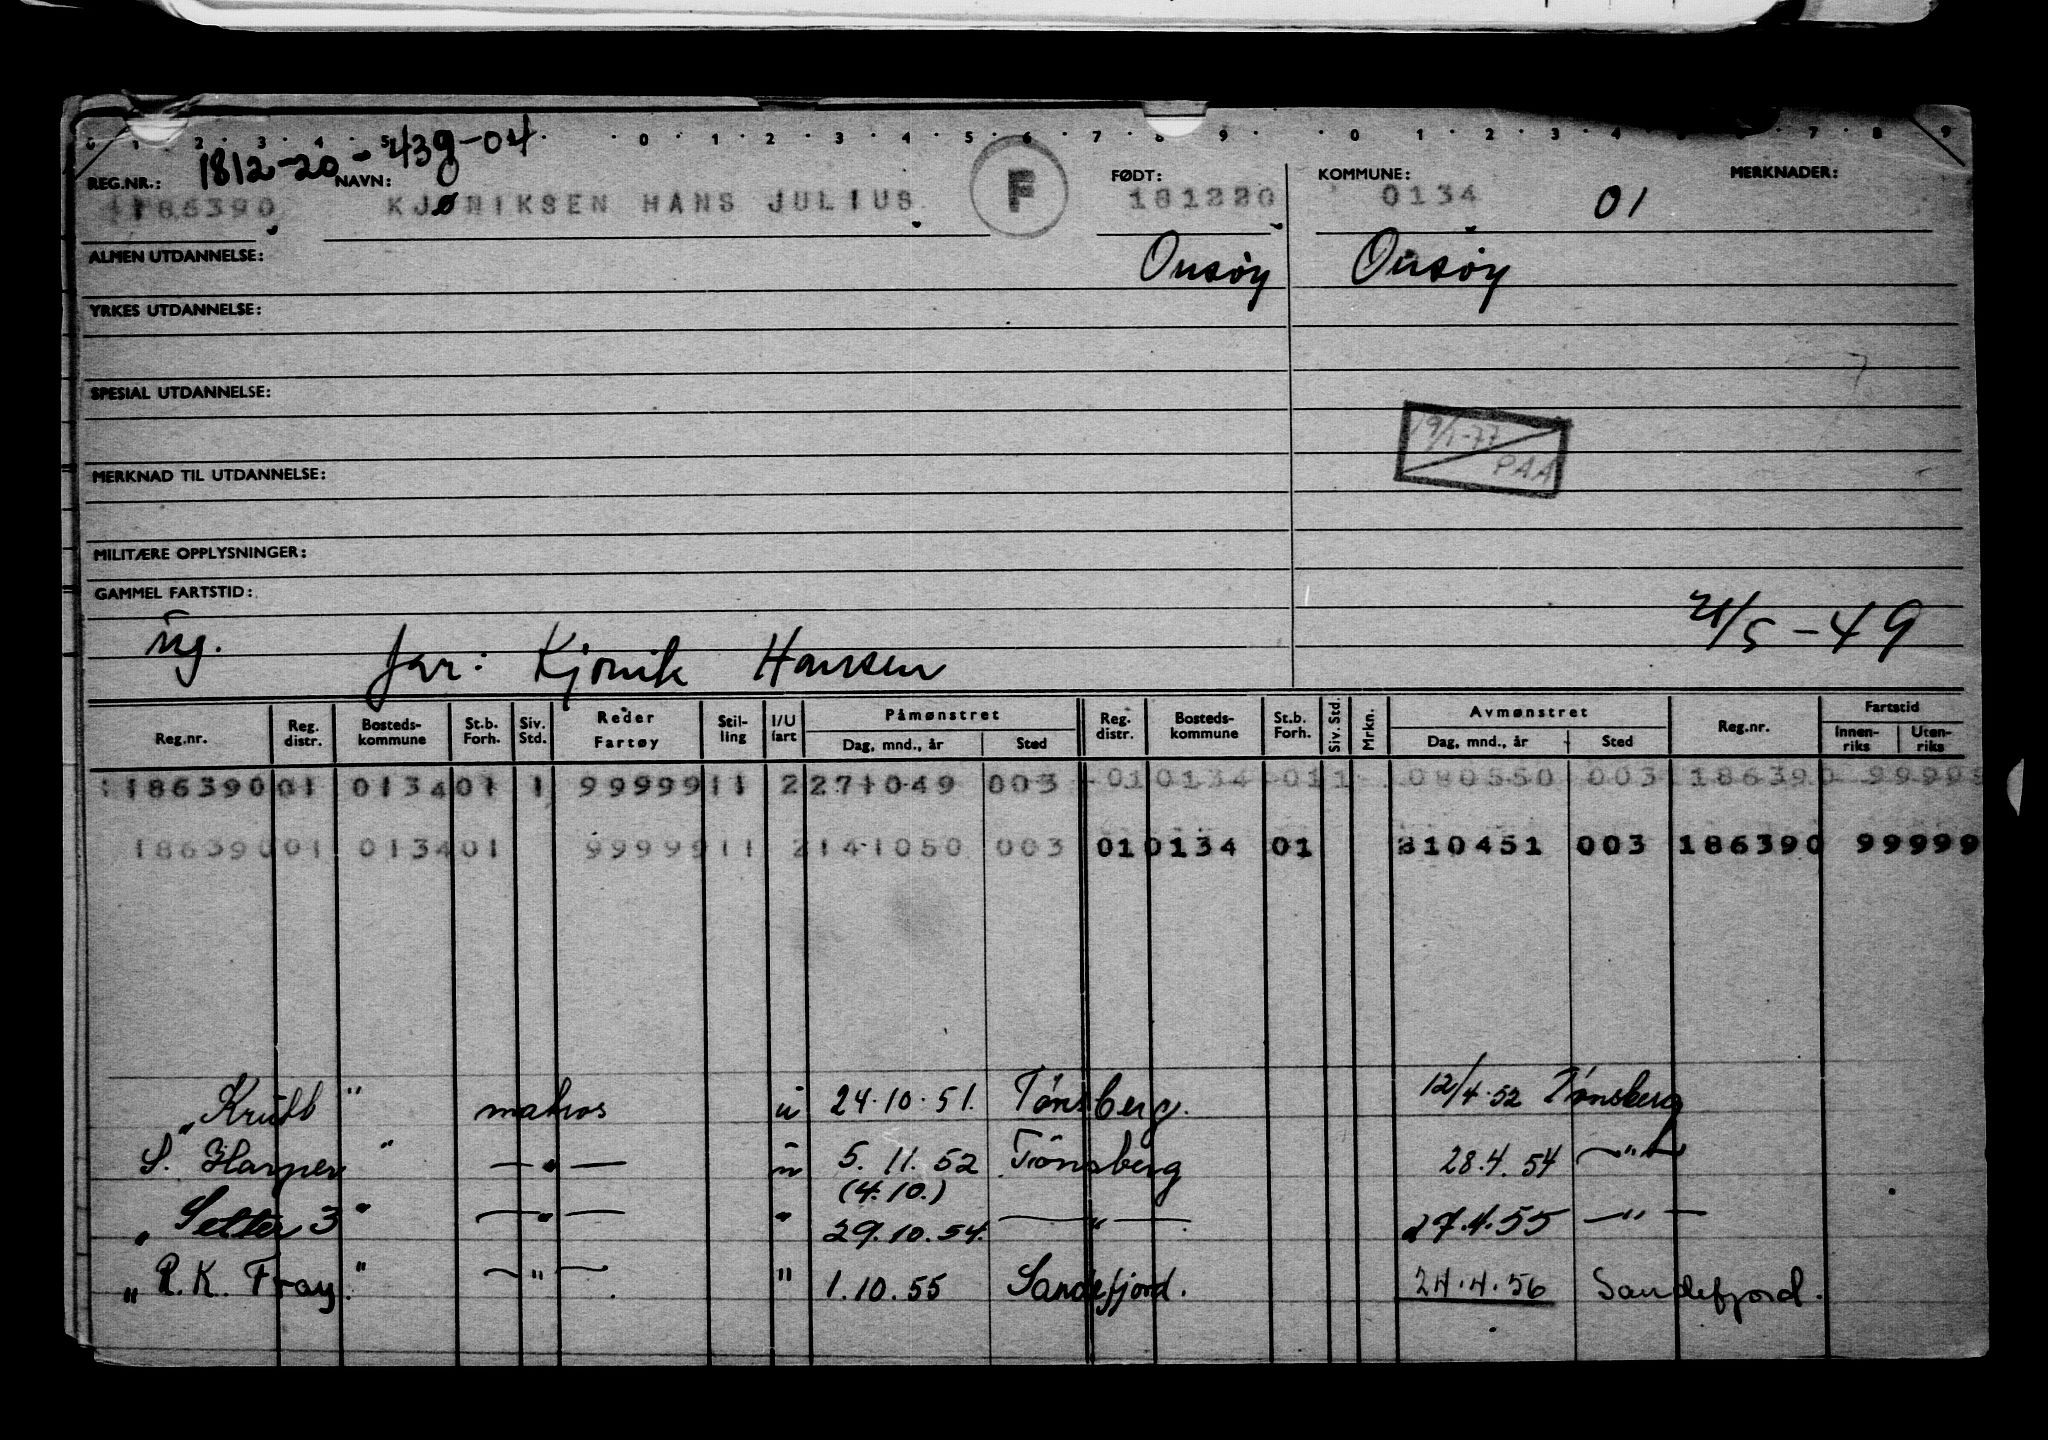 0 1 2 3 4 5 0 1 2 3 4 5 6 7 8 9 0 1 2 3 4 5 6 7 8 9
1812-20-43904
REG.NR.: NAVN: FØDT: KOMMUNE: MERKNADER:
186390 KJØRIKSEN HANS JULIUS F 181220 0134 01
ALMEN UTDANNELSE: Onsøy Onsøy
YRKES UTDANNELSE:
SPESIAL UTDANNELSE:
19/1-77
PAA
MERKNAD TIL UTDANNELSE:
MILITÆRE OPPLYSNINGER:
GAMMEL FARTSTID:
ug. far: Kjørik Hansen 21/5-49
Reg.nr. Reg. distr. Bosteds-kommune St.b. Forh. Siv. Std. Reder Fartøy Stil-ling I/U fart Påmønstret Dag, mnd., år Sted Reg. distr. Bosteds-kommune St.b. Forh. Siv. Std. Mrkn. Avmønstret Dag, mnd., år Sted Reg.nr. Fartstid Innen-riks Uten-riks
186390 01 0134 01 1 99999 11 2 271049 003 01 0134 01 1 080550 003 186390 99999
186390 01 0134 01 99999 11 2 141050 003 01 0134 01 310451 003 186390 99999
„Krutt" matros u 24.10.51. Tønsberg. 12/4.52 Tønsberg
S. Harpen" —"— u 5.11.52 Tønsberg 28.4.54 —"—
(4.10.)
„Setter 3" —"— " 29.10.54. —"— 27.4.55 —"—
„P.K. Fray." —"— " 1.10.55 Sandefjord. 24.4.56 Sandefjord.